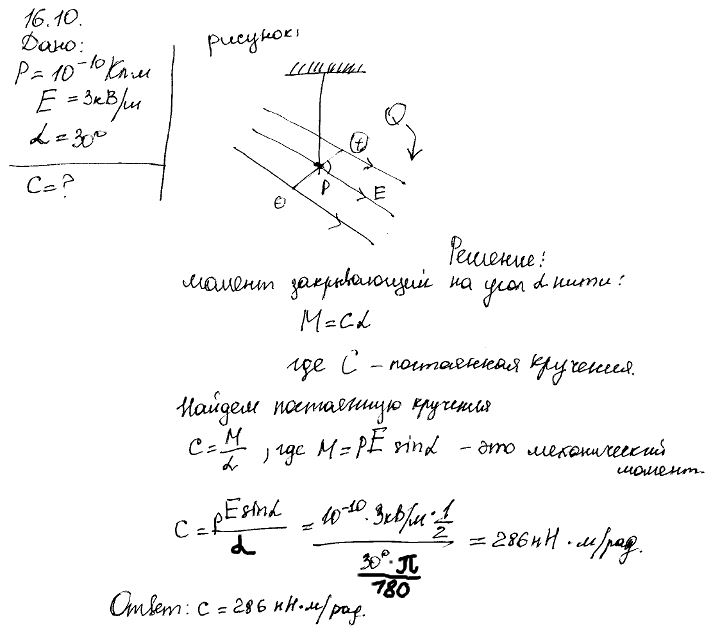 16.10.
Дано:
P = 10⁻¹⁰ Кл·м
E = 3кВ/м
α = 30°
C = ?
рисунок:
Q
+
P
E
⊖
Решение:
момент закрывающий на угол α нити:
M = Cα
где C – постоянная кручения.
Найдем постоянную кручения
C = M/α, где M = PE sinα – это механический
момент
C = pE sinα/α = (10⁻¹⁰ · 3кВ/м · 1/2)/(30° · π/180) = 286 нН · м/рад.
Ответ: C = 286 нН · м/рад.